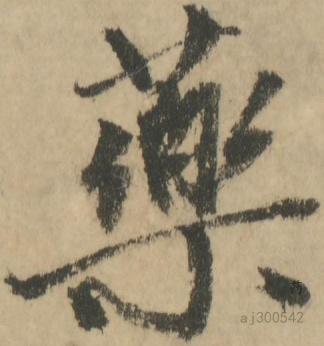 藥
aj300542